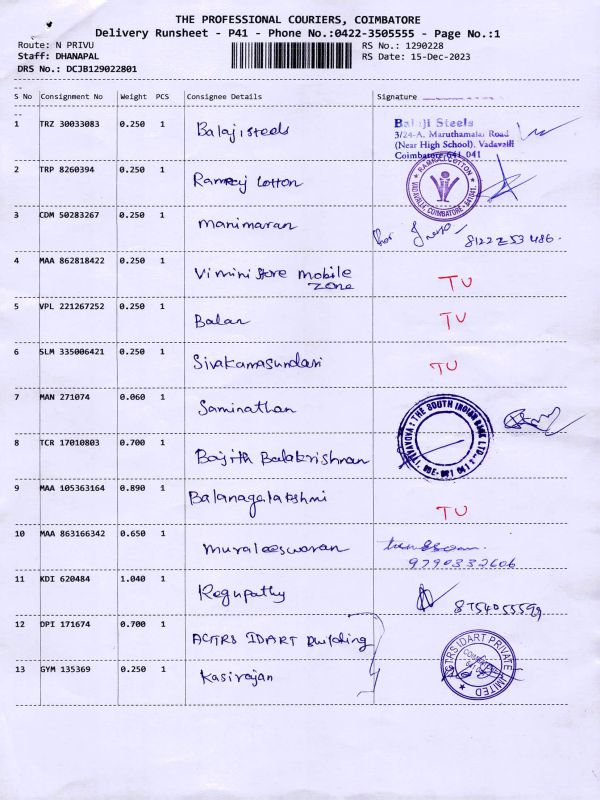 THE PROFESSIONAL COURIERS, COIMBATORE
Delivery Runsheet - P41 - Phone No.:0422-3505555 - Page No.:1
Route: N PRIVU
RS No.: 1290228
Staff: DHANAPAL
RS Date: 15-Dec-2023
DRS No.: DCJB129022801
S No Consignment No Weight PCS Consignee Details Signature
1 TRZ 30033083 0.250 1 Balaji steels
Balaji Steels
3/24-A, Maruthamalai Road
(Near High School), Vadavalli
Coimbatore-641 041
2 TRP 8260394 0.250 1 Ramraj Cotton
RAMRAJ COTTON
VADAVALLI, COIMBATORE-641041.
3 CDM 50283267 0.250 1 Manimaran
4 MAA 862818422 0.250 1 Vimini Store mobile
zone
TU
5 VPL 221267252 0.250 1 Balan TU
6 SLM 335006421 0.250 1 Sivakamasundari TU
7 MAN 271074 0.060 1 Saminathan
THE SOUTH INDIAN BANK LTD.
8 TCR 17010803 0.700 1 Bajith Balakrishnan
9 MAA 105363164 0.890 1 Balanagalakshmi TU
10 MAA 863166342 0.650 1 Muraleeswaran
9790332606
11 KDI 620484 1.040 1 Regupathy
12 DPI 171674 0.700 1 ACTRS IDART building
ACTRS IDART PRIVATE LIMITED
13 GYM 135369 0.250 1 Kasirajan